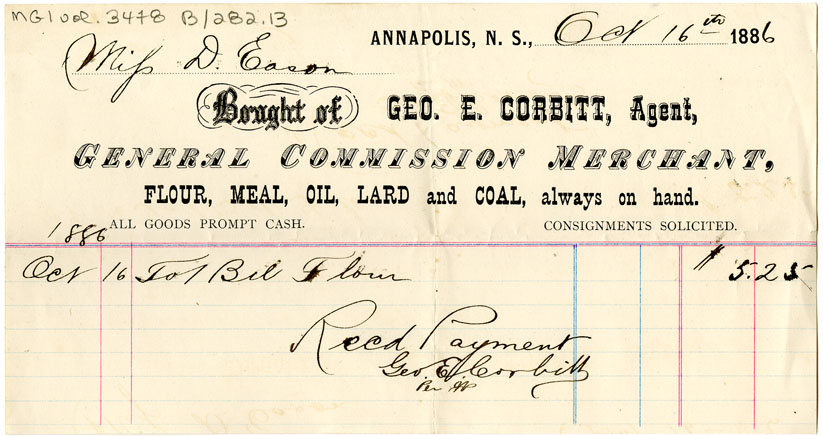 MG1 vol. 3478 B/282.13
ANNAPOLIS, N. S., Oct 16th 1886
Miss D. Eason
Bought of GEO. E. CORBITT, Agent,
GENERAL COMMISSION MERCHANT,
FLOUR, MEAL, OIL, LARD and COAL, always on hand.
ALL GOODS PROMPT CASH. CONSIGNMENTS SOLICITED.
1886
Oct 16 To 1 Bbl Flour $ 5.25
Recd Payment
Geo. E. Corbitt
Per